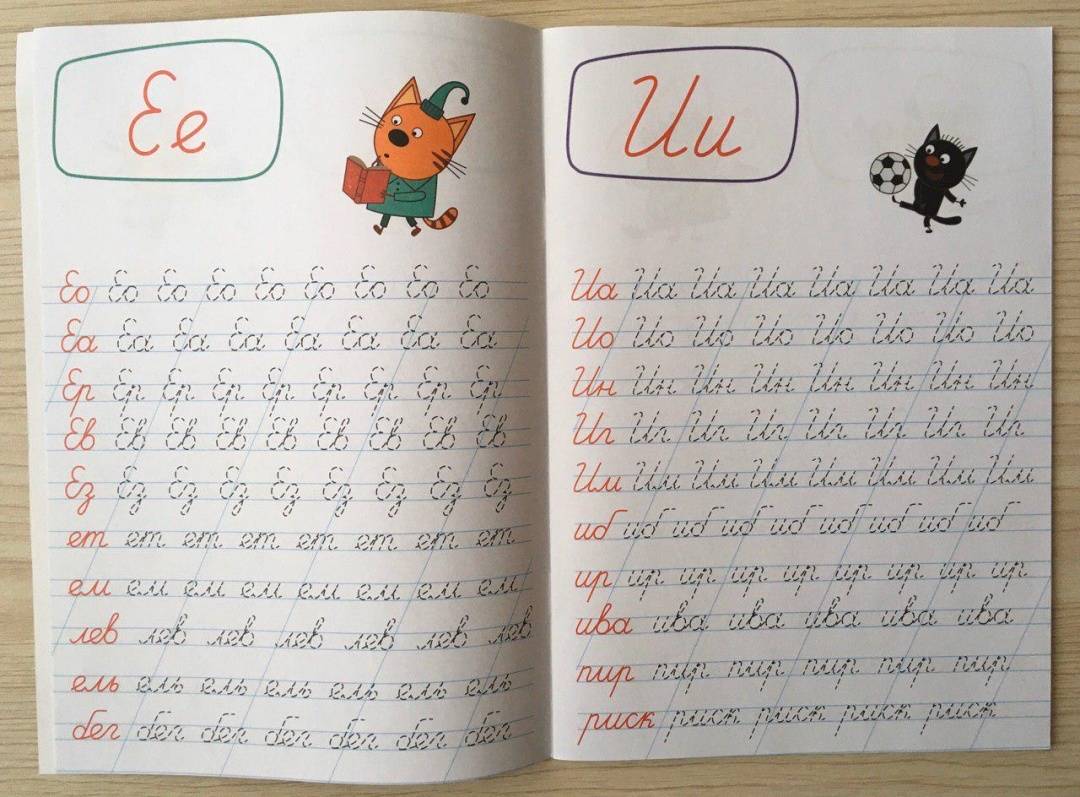 Ее
Ео Ео Ео Ео Ео Ео Ео Ео Ео
Еа Еа Еа Еа Еа Еа Еа Еа
Ер Ер Ер Ер Ер Ер Ер Ер Ер
Ев Ев Ев Ев Ев Ев Ев Ев Ев
Ез Ез Ез Ез Ез Ез Ез Ез Ез
ет ет ет ет ет ет ет ет
ем ем ем ем ем ем ем ем
лев лев лев лев лев лев лев
ель ель ель ель ель ель ель
бег бег бег бег бег бег бег
Ии
Иа Иа Иа Иа Иа Иа Иа Иа
Ио Ио Ио Ио Ио Ио Ио Ио
Ин Ин Ин Ин Ин Ин Ин Ин
Иг Иг Иг Иг Иг Иг Иг Иг
Им Им Им Им Им Им Им Им
иб иб иб иб иб иб иб иб иб
ир ир ир ир ир ир ир ир ир
ива ива ива ива ива ива
пир пир пир пир пир пир
риск риск риск риск риск